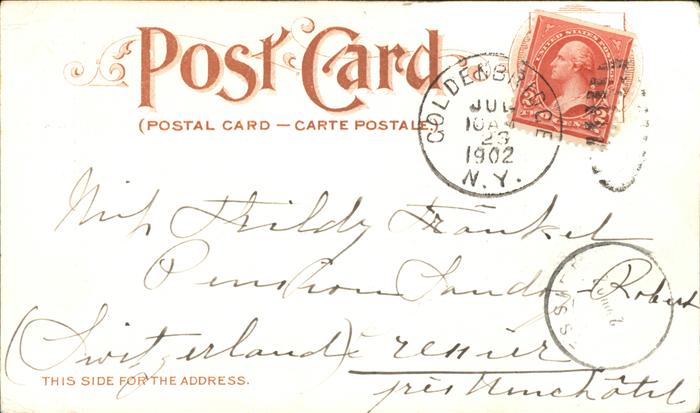 Post Card
(POSTAL CARD — CARTE POSTALE.)
UNITED STATES POSTAGE
GOLDENBRIDGE
JUL
10AM
23
1902
N.Y.
Miss Fridy Fränkel
Pension Sandoz-Robert
(Switzerland)
près Neuchâtel
THIS SIDE FOR THE ADDRESS.